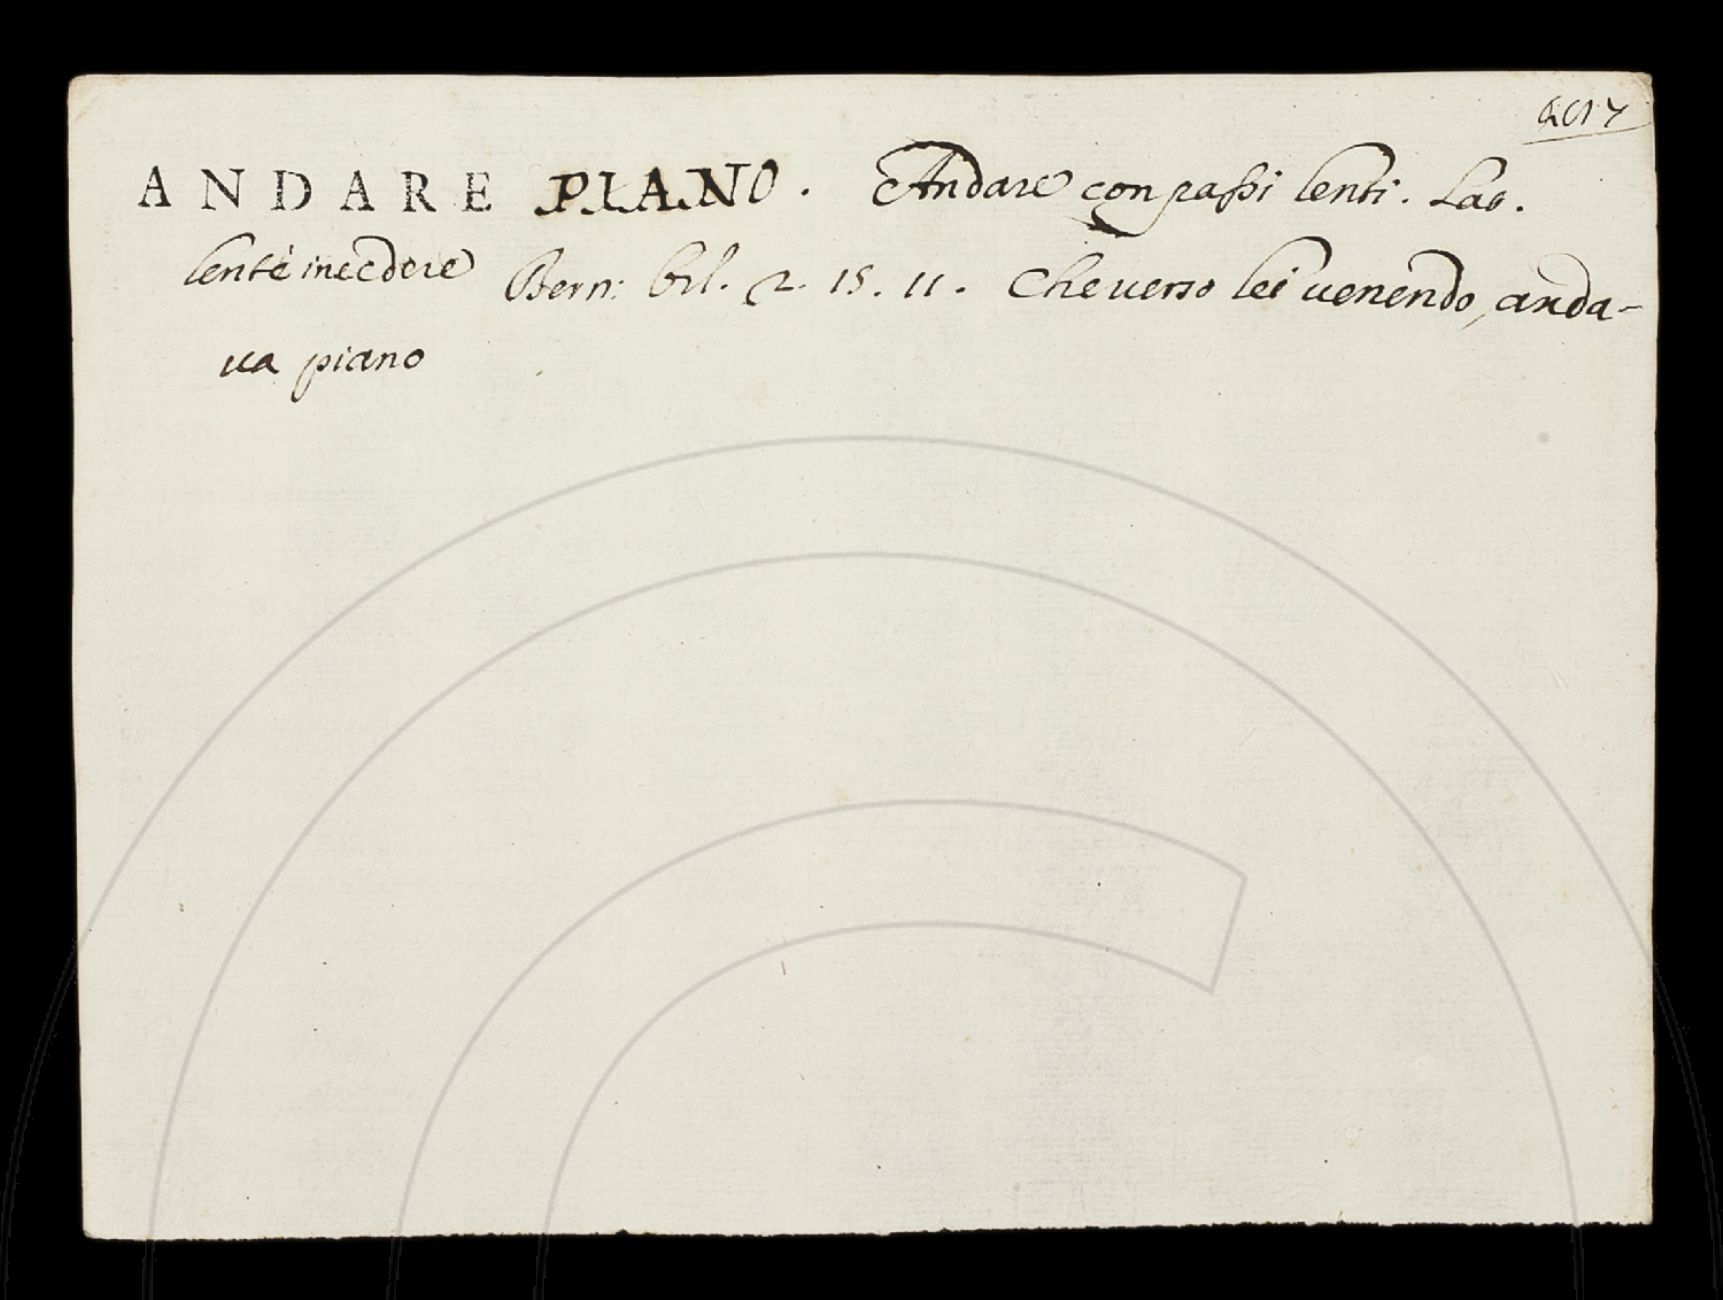 ANDARE PIANO. Andare con passi lenti. Lat.
lentè inecdere Bern: Orl. 2. 15. 11. Che verso lei venendo, anda-
va piano